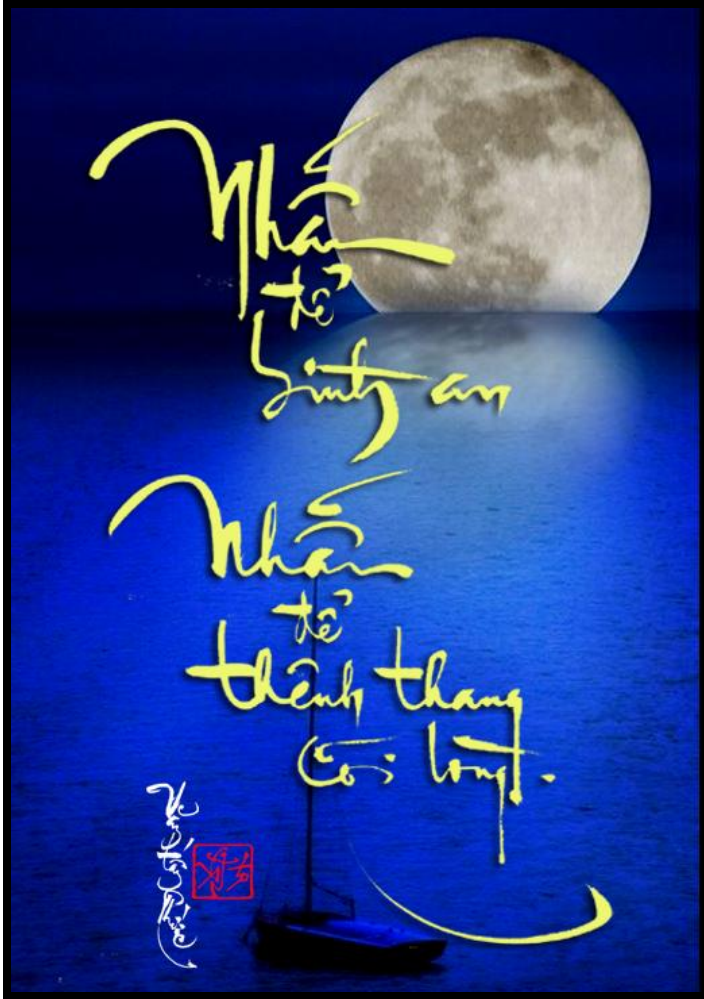 Nhẫn
để
bình an
Nhẫn
để
thênh thang
cõi lòng.